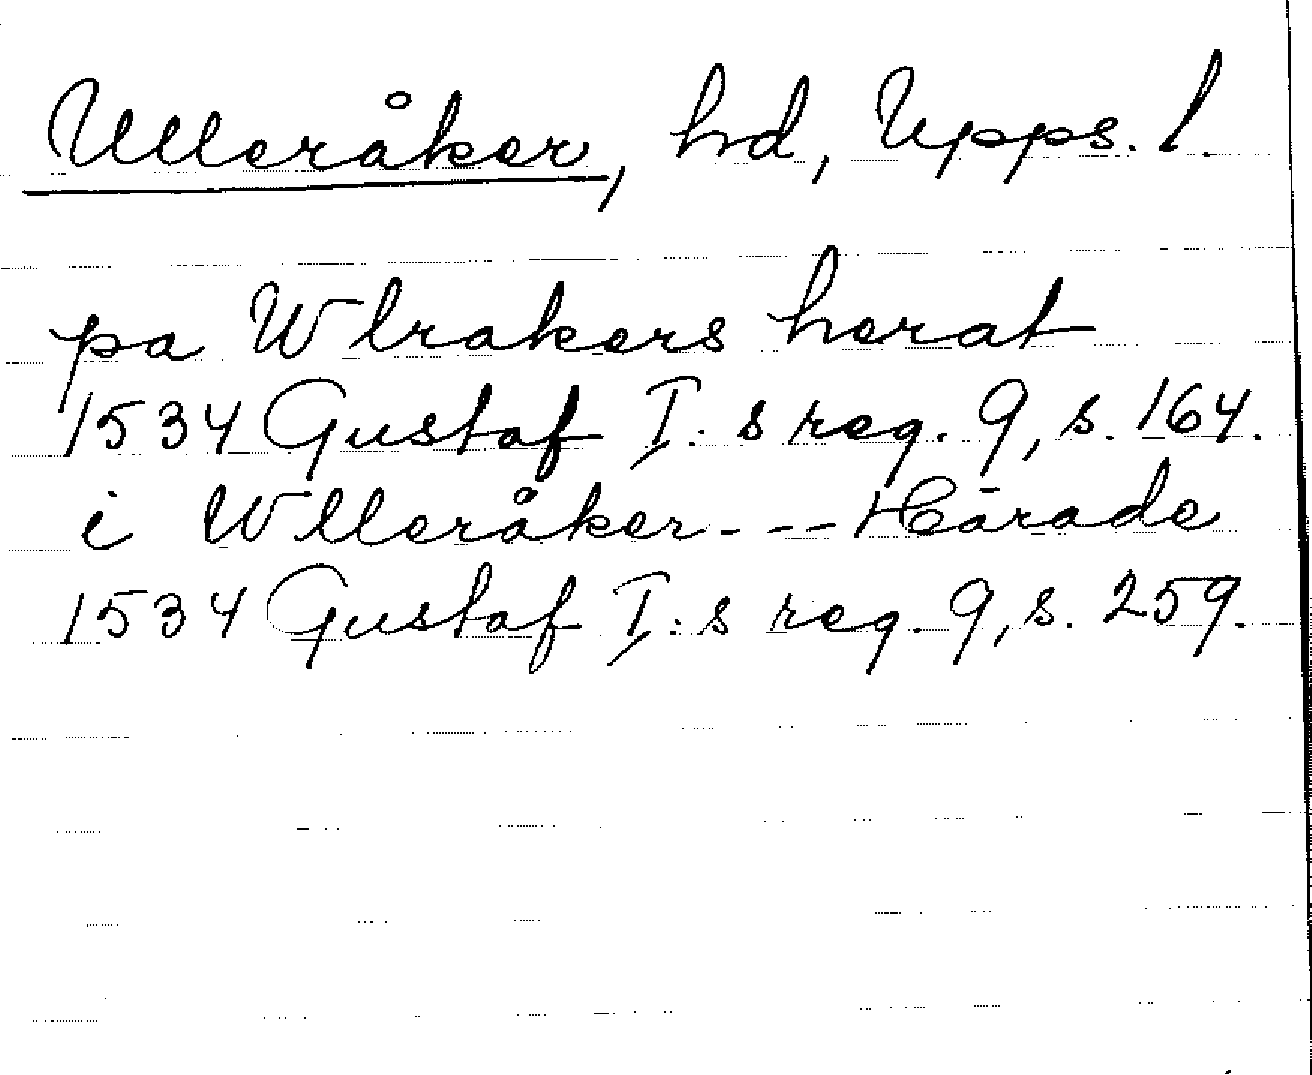 Ulleråker, hd, Upps. l.
pa Wlrakers herat
1534 Gustaf I:s reg. 9, s. 164.
i Wlleråker --- Hārade
1534 Gustaf I:s reg. 9, s. 259.